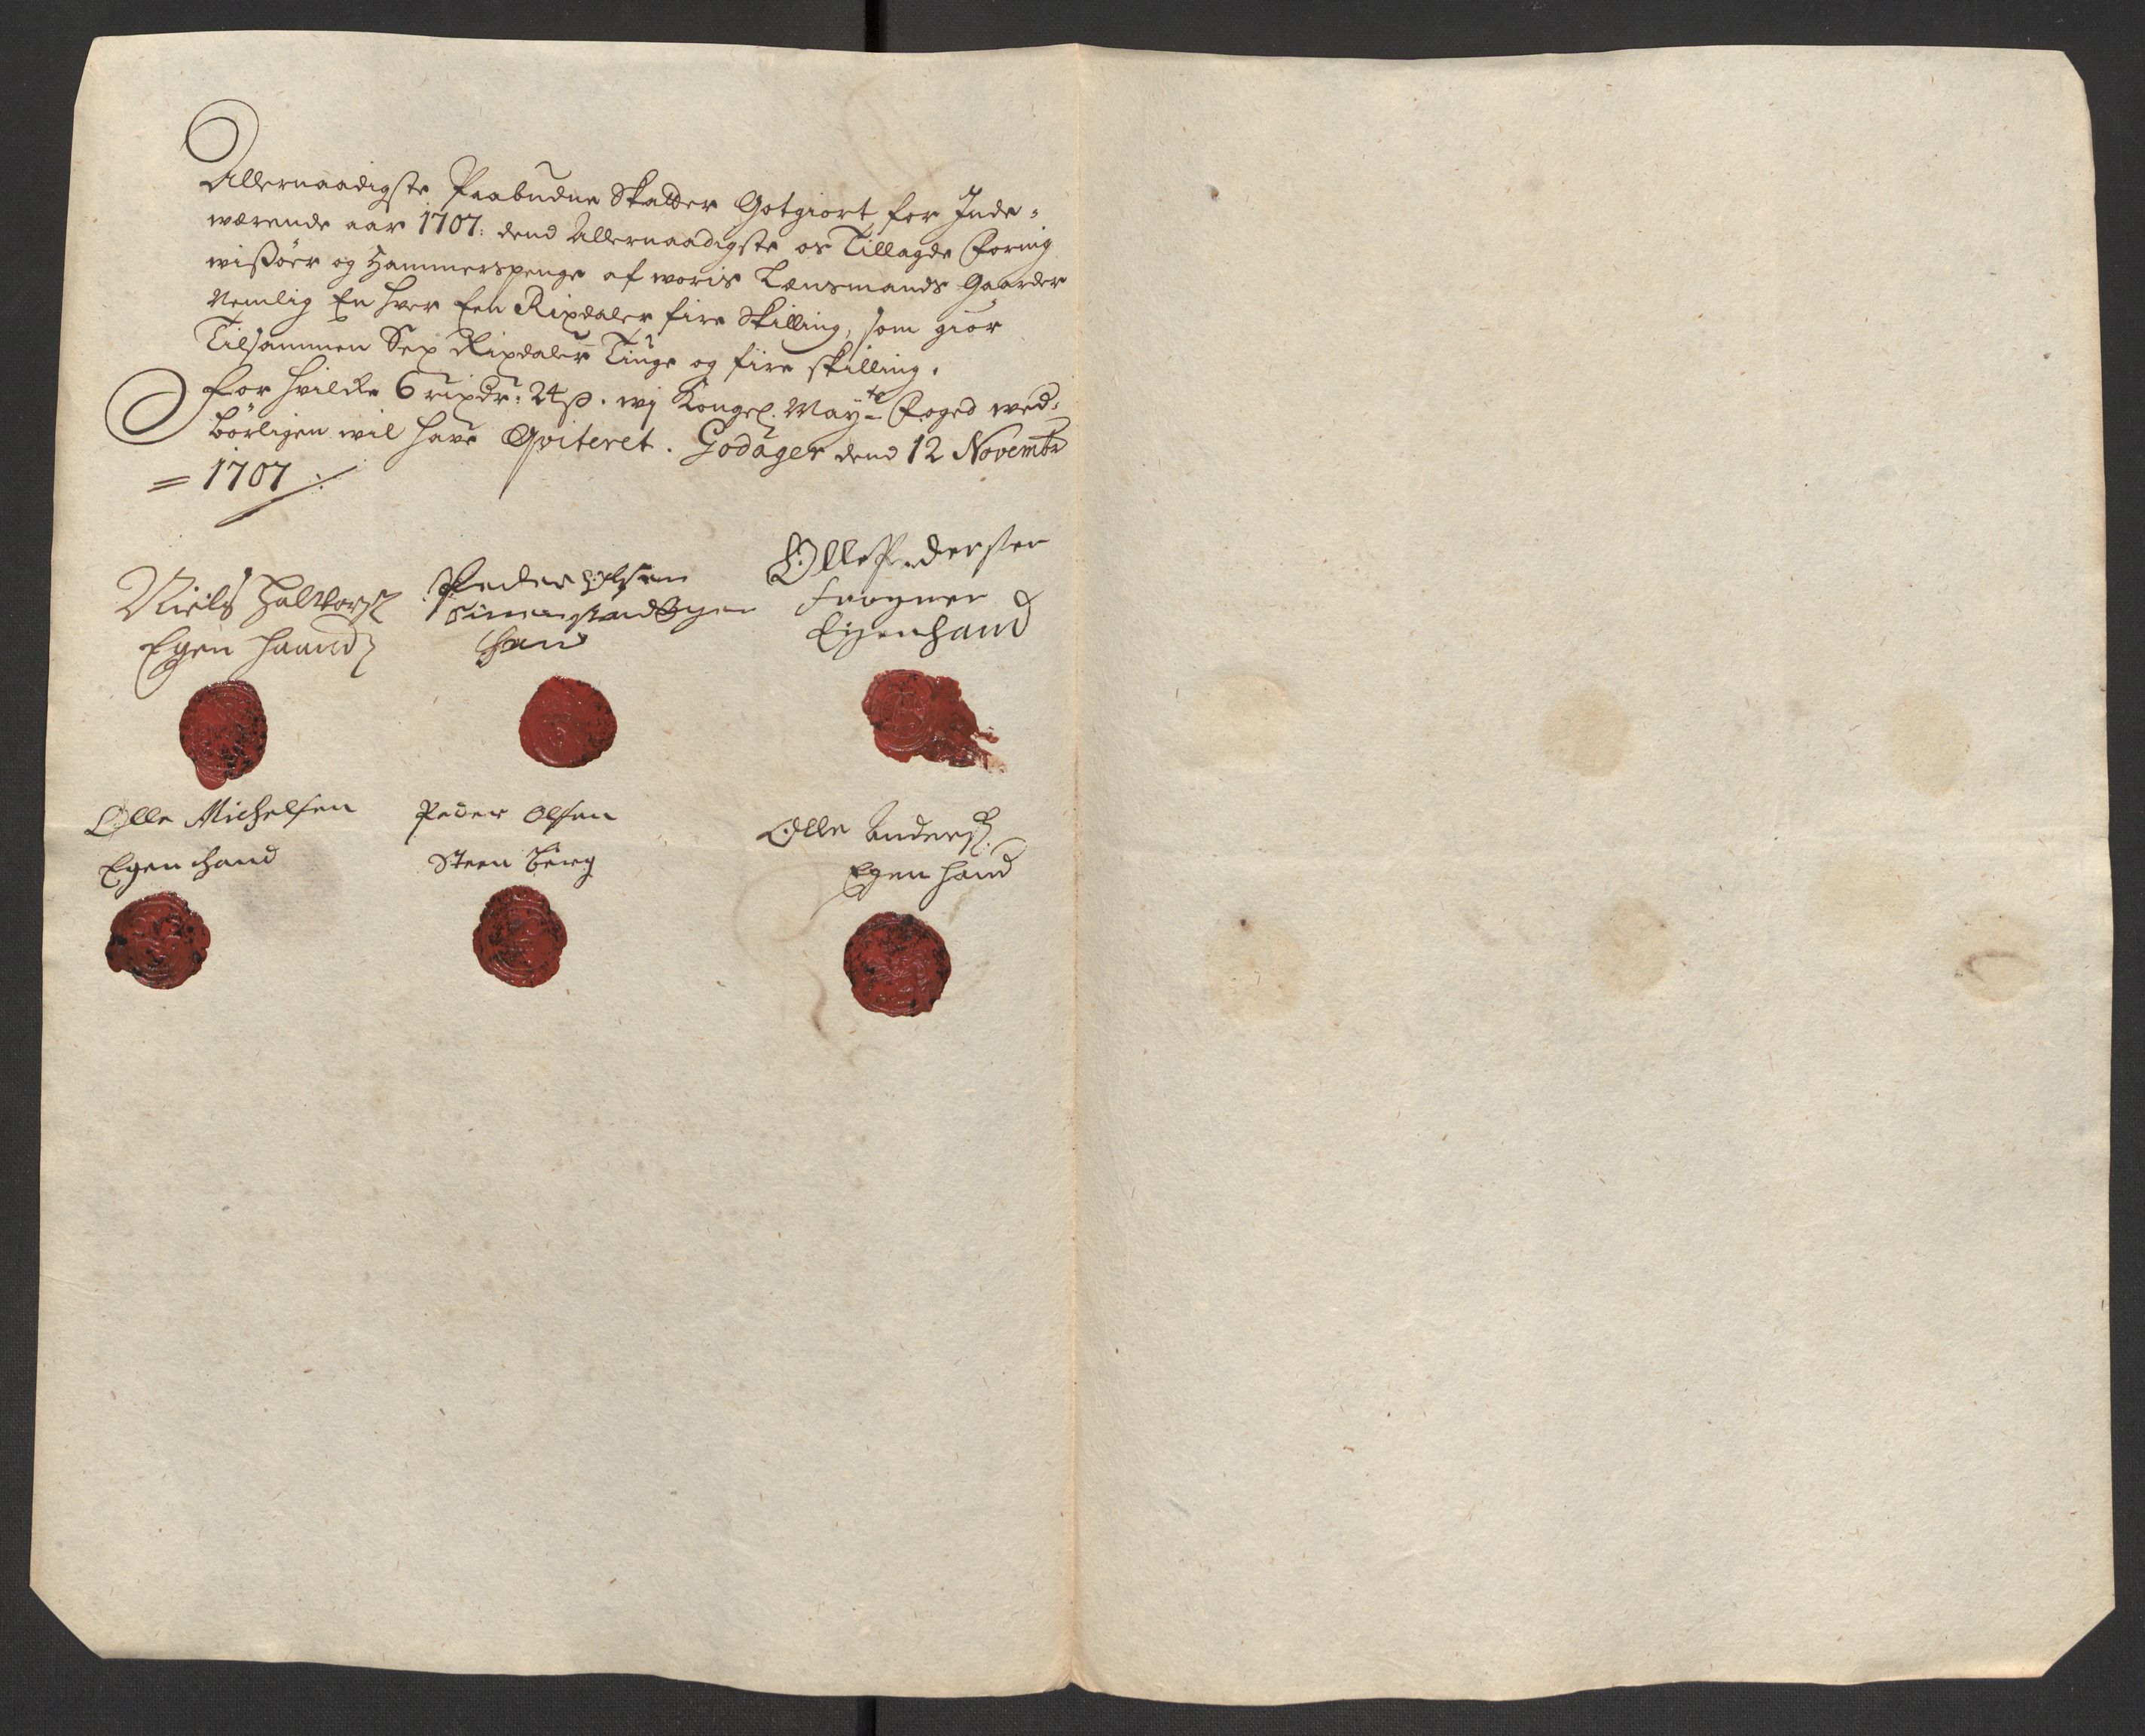 Allernaadigste Paabudne Skatter Gotgiort for Inde=
wærende aar 1707: dend Allernaadigste os Tillagde Foring
wißøer og Hammerspenge af woris Lænsmands Gaarder
Nemlig En hver Een Rixdaler fire Skilling, som giør
Tilsammen Sex Rixdaler Tiuge og fire skilling.
For hvilcke 6 rixdr: 24 ß. wj Kongel. Mayts Foged wed=
børligen wil have Qviteret. Godager dend 12 Novembr
= 1707 ./.
Niels Halvorß
Egen Haand
Peder olsen
Simenstad Egen
Hand
Olle Pedersen
Frogner
Eigenhand
Olle Michelsen
Egen hand
Peder Olsen
Steen berg
Olle Anderß.
Egen haand